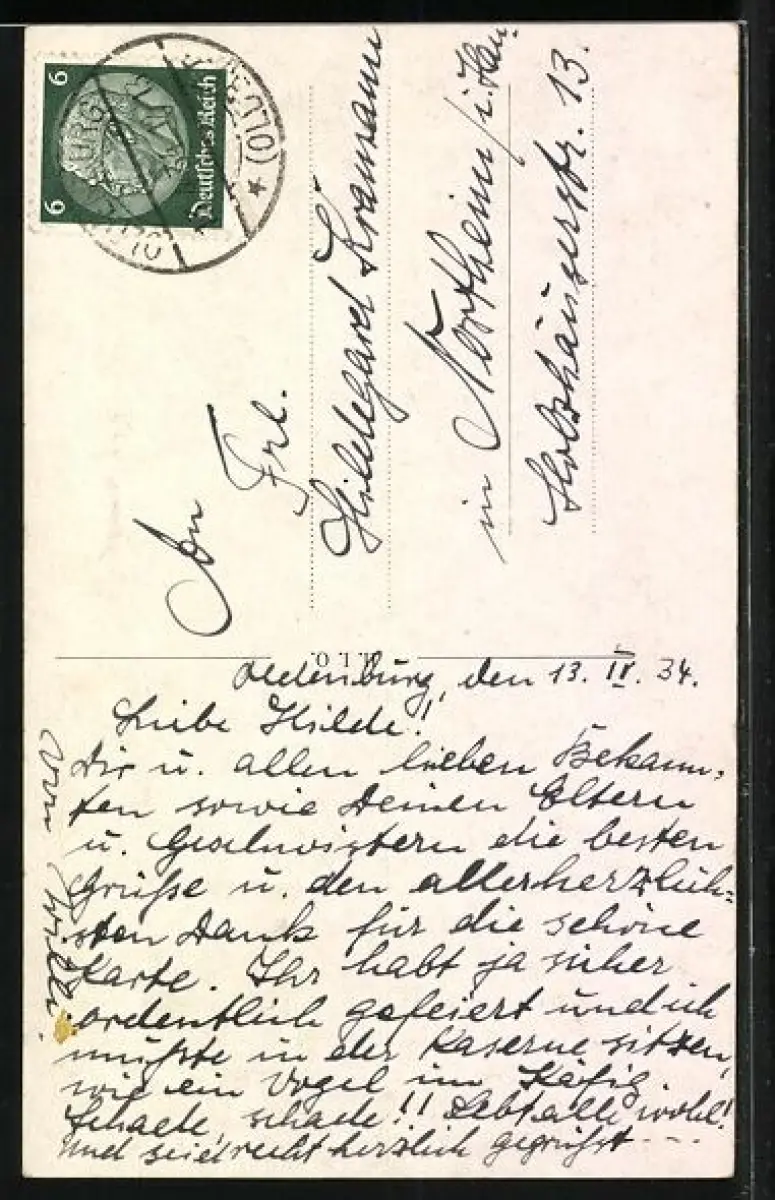 6
6
Deutsches Reich
(OLD
An
Frl.
Hildegard Kramann
in Northeim / i. Han.
Holzhäuserstr. 13.
Oldenburg, den 13. II. 34.
Liebe Hilde!
Dir u. allen lieben Bekann-
ten sowie Deinen Eltern
u. Geschwistern die besten
Grüße u. den allerherzlich-
sten Dank für die schöne
Karte. Ihr habt ja sicher
ordentlich gefeiert und ich
mußte in der Kaserne sitzen,
wie ein Vogel im Käfig.
Schade, schade!! Lebt alle wohl!
Und seid recht herzlich gegrüßt ---
vom